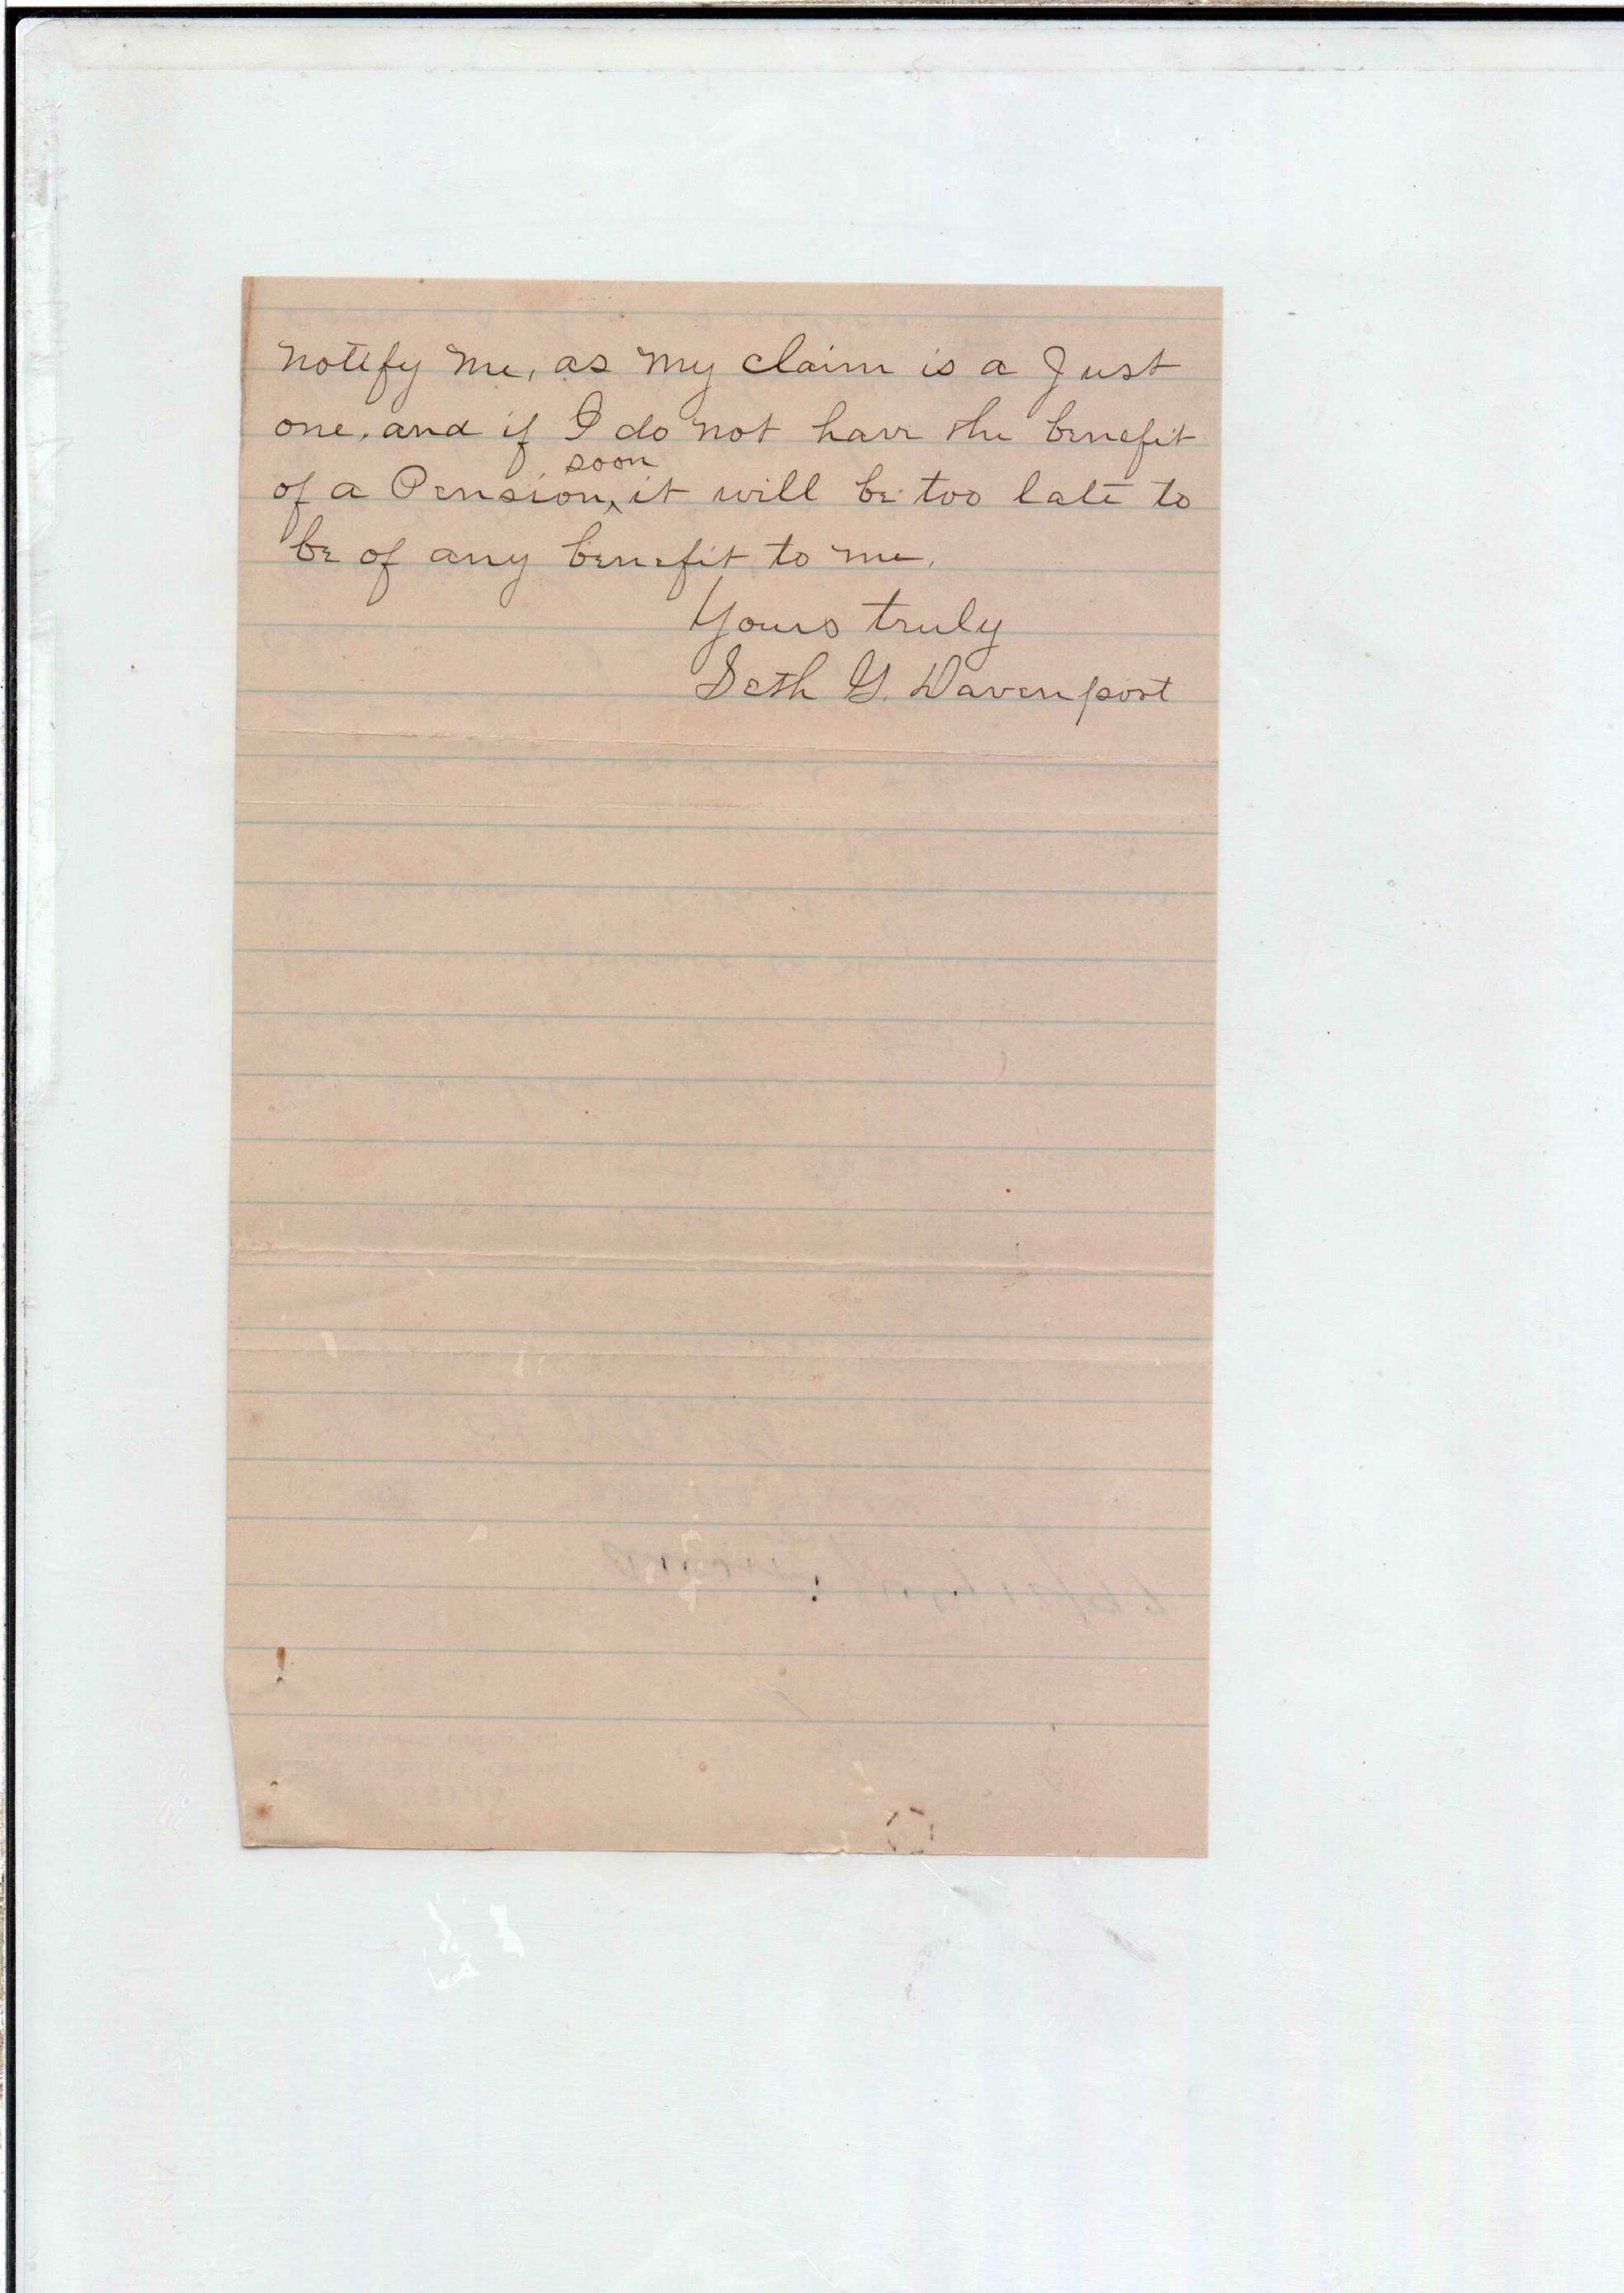 notify me, as my claim is a Just
one, and if I do not have the benefit
soon
of a Pension, it will be too late to
be of any benefit to me.
Yours truly
Seth G. Davenport